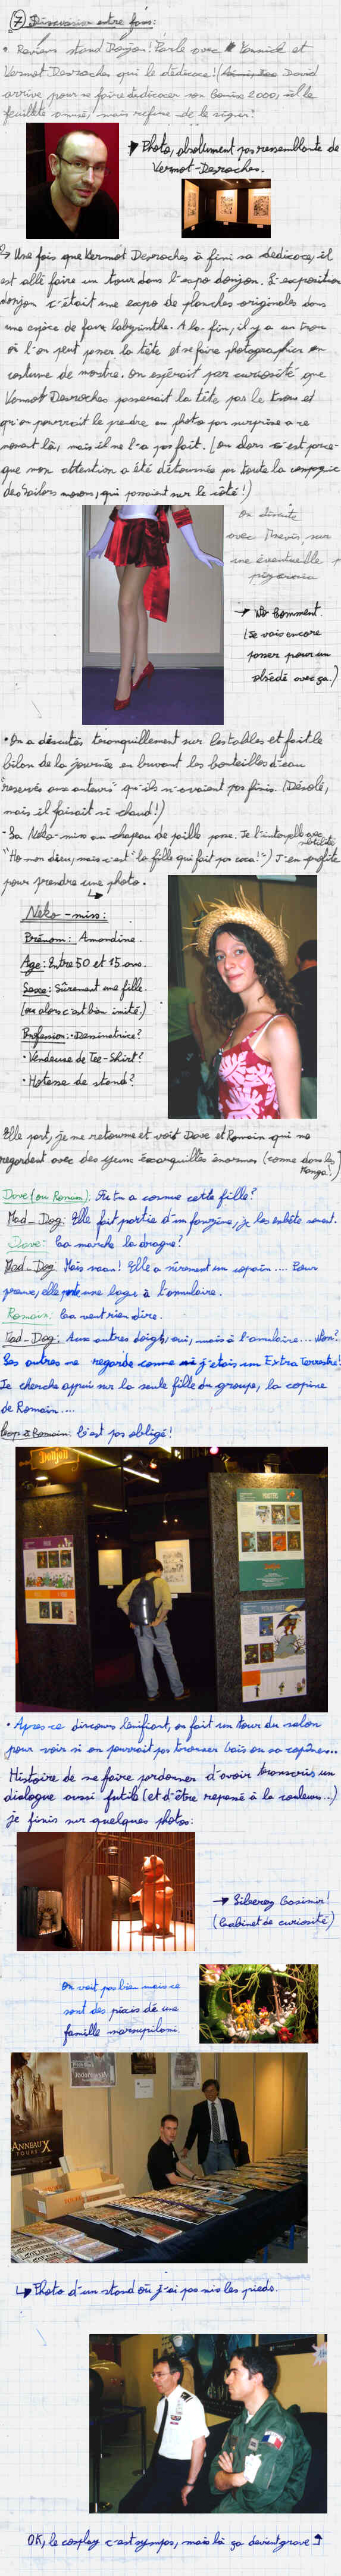 7 Discussion entre fans:
• Reviens stand Donjon! Parle avec Yannick et
Vermot-Desroches qui le dédicace! David
arrive pour se faire dédicacer son Comix 2000, il le
feuillette amusé, mais refuse de le signer!
→ Photo, absolument pas ressemblante de
Vermot-Desroches.
↳ Une fois que Vermot Desroches à fini sa dédicace, il
est allé faire un tour dans l'expo donjon. L'exposition
donjon c'était une expo de planches originales dans
une espèce de faux labyrinthe. A la fin, il y a un trou
où l'on peut poser la tête et se faire photographier en
costume de monstre. On espérait par curiosité que
Vermot Desroches passerait la tête par le trou et
qu'on pourrait le prendre en photo par surprise à ce
moment là, mais il ne l'a pas fait. (ou alors c'est parce-
que mon attention a été détournée par toute la compagnie
des Sailors moons, qui posaient sur le côté!)
On discute
avec Thevis sur
une éventuelle
→ No Comment.
(Je vais encore
passer pour un
obsédé avec ça.)
• On a discutés tranquillement sur les tables et fait le
bilan de la journée en buvant les bouteilles d'eau
"reservés aux auteurs" qu'ils n'avaient pas finis. (Désolé,
mais il faisait si chaud!)
- La Neko-miss au chapeau de paille passe. Je l'interpelle avec
subtilité
"Ho mon dieu, mais c'est "la fille qui fait pas coca!") J'en profite
pour prendre une photo.
Neko-miss:
Prénom: Amandine.
Age: Entre 50 et 15 ans.
Sexe: Sûrement une fille.
(ou alors c'est bien imité.)
Profession: • Dessinatrice?
• Vendeuse de Tee-Shirt?
• Hotesse de stand?
Elle part, je me retourne et voit Dave et Romain qui me
regardent avec des yeux écarquillés énormes (comme dans les
Manga!)
Dave (ou Romain): Tu a connue cette fille?
Mad-Dog: Elle fait partie d'un fanzine, je les embête souvent.
Dave: Ca marche la drague?
Mad-Dog: Mais naan! Elle a sûrement un copain.... Pour
preuve, elle porte une bague à l'annulaire.
Romain: Ca veut rien dire.
Mad-Dog: Aux autres doigts, oui, mais à l'annulaire... Non?
Les autres me regarde comme si j'étais un Extra Terrestre!
Je cherche appui sur la seule fille du groupe, la copine
de Romain....
Cop à Romain: C'est pas obligé!
Donjon
• Apres ce discours lénifiant, on fait un tour du salon
pour voir si on pourrait pas trouver Caïs ou sa copine...
Histoire de me faire pardonner d'avoir transcris un
dialogue aussi futile (et d'être repassé à la couleur...)
je finis sur quelques photos:
→ Siberey Casimir!
(Cabinet de curiosité)
On voit pas bien mais ce
sont des piafs dé une
famille marsupilami
ANNEAUX
TOURS
Jodorowsky
↳ Photo d'un stand où j'ai pas mis les pieds.
OK, le cosplay c'est sympas, mais là ça devient grave